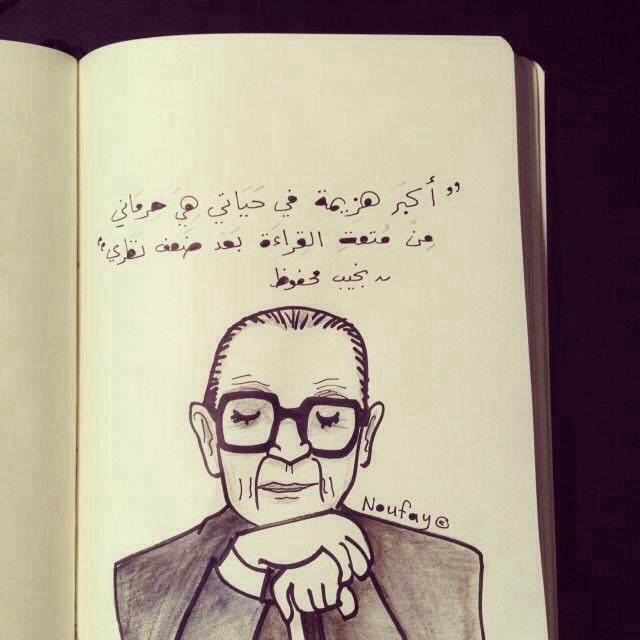 " أكبَر هزيمة في حَيَاتي هِيَ حرمَاني
مِنْ مُتعة القِراءَة بَعد ضَعف نَظري"
~ نجيب محفوظ
Noufay©